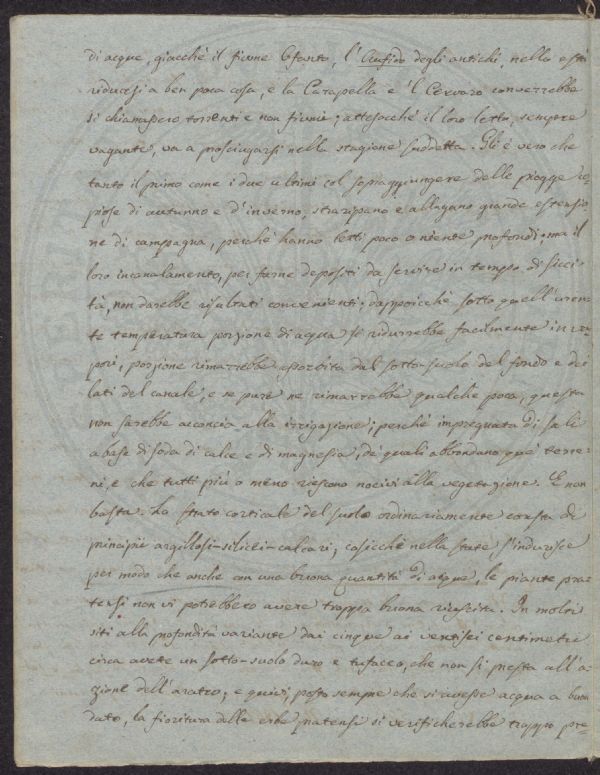 di acque, giacché il fiume Ofanto, l'Aufido degli antichi, nella està
riducesi a ben poca cosa, e la Carapella e 'l Cervaro converrebbe
si chiamassero torrenti e non fiumi; attesocché il loro letto, sempre
vagante, va a prosciugarsi nella stagione suddetta. Gli è vero che
tanto il primo come i due ultimi col sopraggiungere delle piogge co-
piose di autunno e d'inverno, straripano e allagano grande estensio-
ne di campagna, perché hanno letti poco o niente profondi; ma il
loro incanalamento, per farne depositi da servire in tempo di sicci-
tà, non darebbe risultati convenienti; dappoicché sotto quell'uren-
te temperatura porzione di acqua si ridurrebbe facilmente in va-
pori, porzione rimarrebbe assorbita dal sotto-suolo del fondo e dei
lati del canale, e se pure ne rimarrebbe qualche poca, questa
non sarebbe acconcia alla irrigazione; perché impregnata di sali
a base di soda di calce e di magnesia, de' quali abbondano que' terre-
ni, e che tutti più o meno riescono nocivi alla vegetazione. E non
basta. Lo strato corticale del suolo ordinariamente consta di
principii argillosi-silicei-calcari, cosicché nella state s'indurisce
per modo che anche con una buona quantità di acqua, le piante pra-
tensi non vi potrebbero avere troppa buona riuscita. In molti
siti alla profondità variante dai cinque ai ventisei centimetri
circa avete un sotto-suolo duro e tufaceo, che non si presta all'a-
zione dell'aratro, e quivi, posto sempre che si avesse acqua a buon
dato, la fioritura delle erbe pratensi si verificherebbe troppo pre-